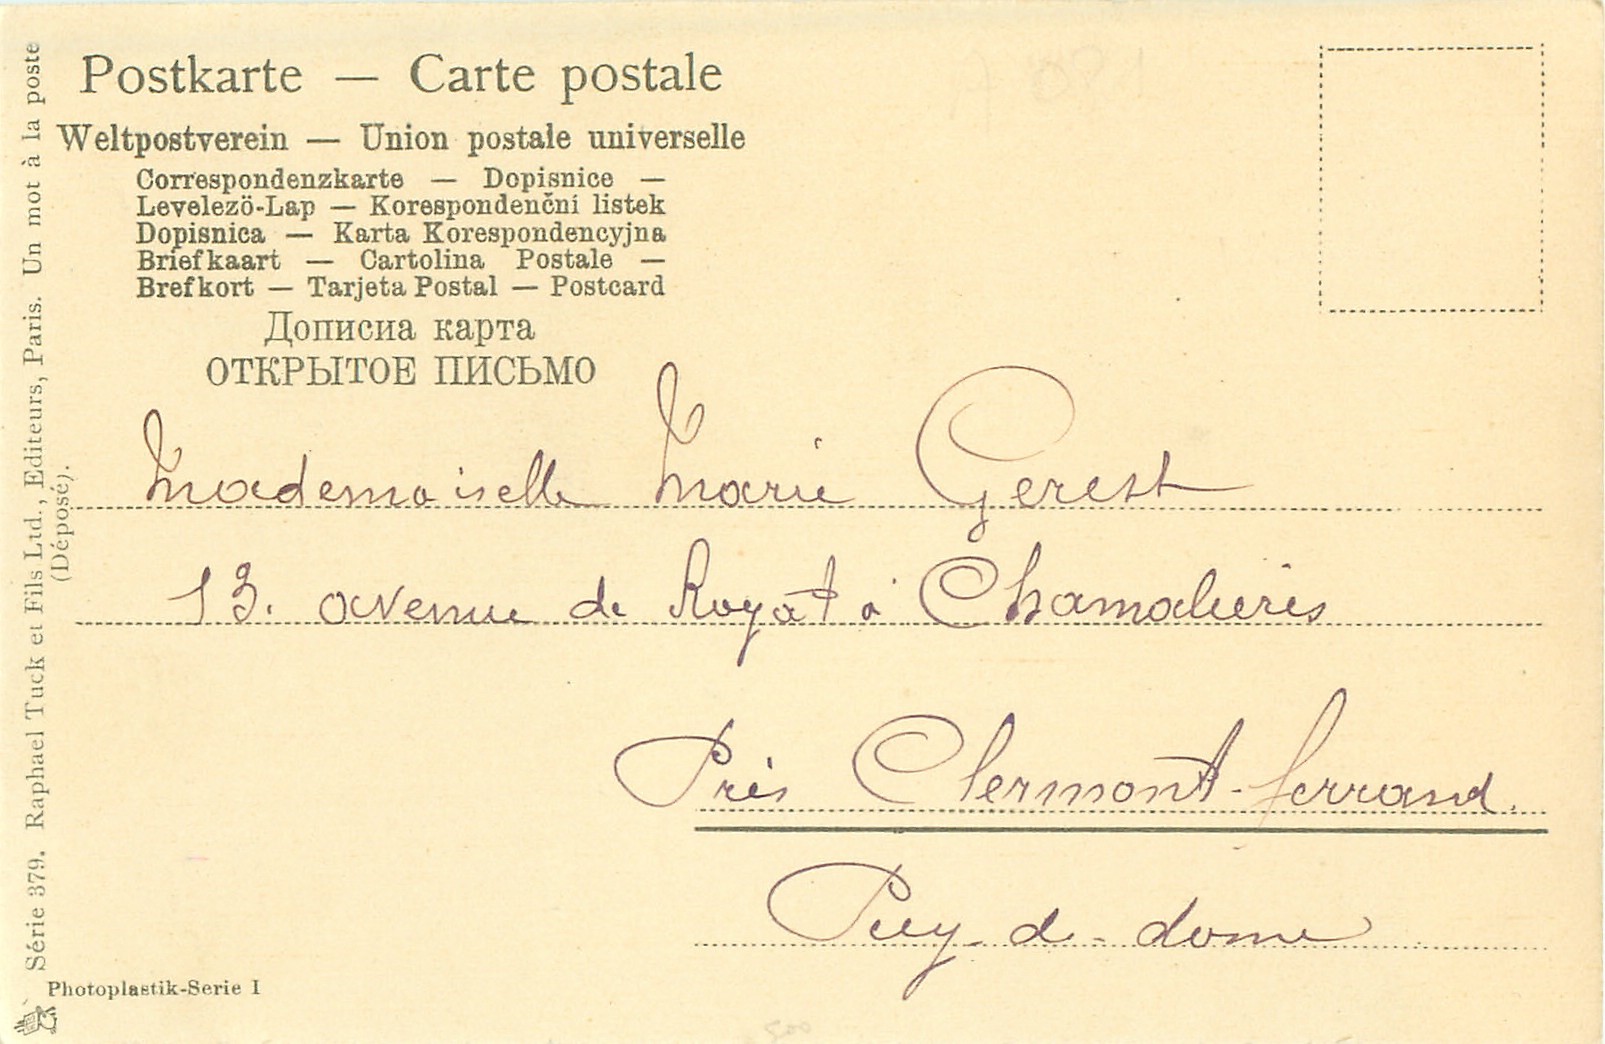 Postkarte — Carte postale
Weltpostverein — Union postale universelle
Correspondenzkarte — Dopisnice —
Levelezö-Lap — Korespondenčni listek
Dopisnica — Karta Korespondencyjna
Briefkaart — Cartolina Postale —
Brefkort — Tarjeta Postal — Postcard
Дописиа карта
ОТКРЫТОЕ ПИСЬМО
Mademoiselle Marie Gerest
13. avenue de Royat à Chamalières
Près Clermont-ferrand.
Puy-de-dome
Série 379. Raphael Tuck et Fils Ltd., Editeurs, Paris. Un mot à la poste
(Déposé).
Photoplastik-Serie I